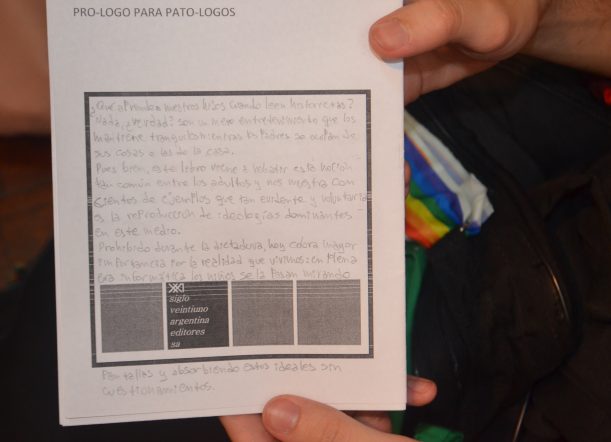 PRO-LOGO PARA PATO-LOGOS
¿Qué aprenden nuestros hijos cuando leen historietas?
Nada, ¿verdad? son un mero entretenimiento que los
mantiene tranquilos mientras los padres se ocupan de
sus cosas o las de la casa.
Pues bien, este libro viene a voltear esta noción
tan común entre los adultos y nos muestra con
cientos de ejemplos que tan evidente y voluntaria
es la reproducción de ideologías dominantes
en este medio.
Prohibido durante la dictadura, hoy cobra mayor
importancia por la realidad que vivimos: en plena
era informática los niños se la pasan mirando
siglo
veintiuno
argentina
editores
sa
pantallas y absorbiendo estos ideales sin
cuestionamientos.